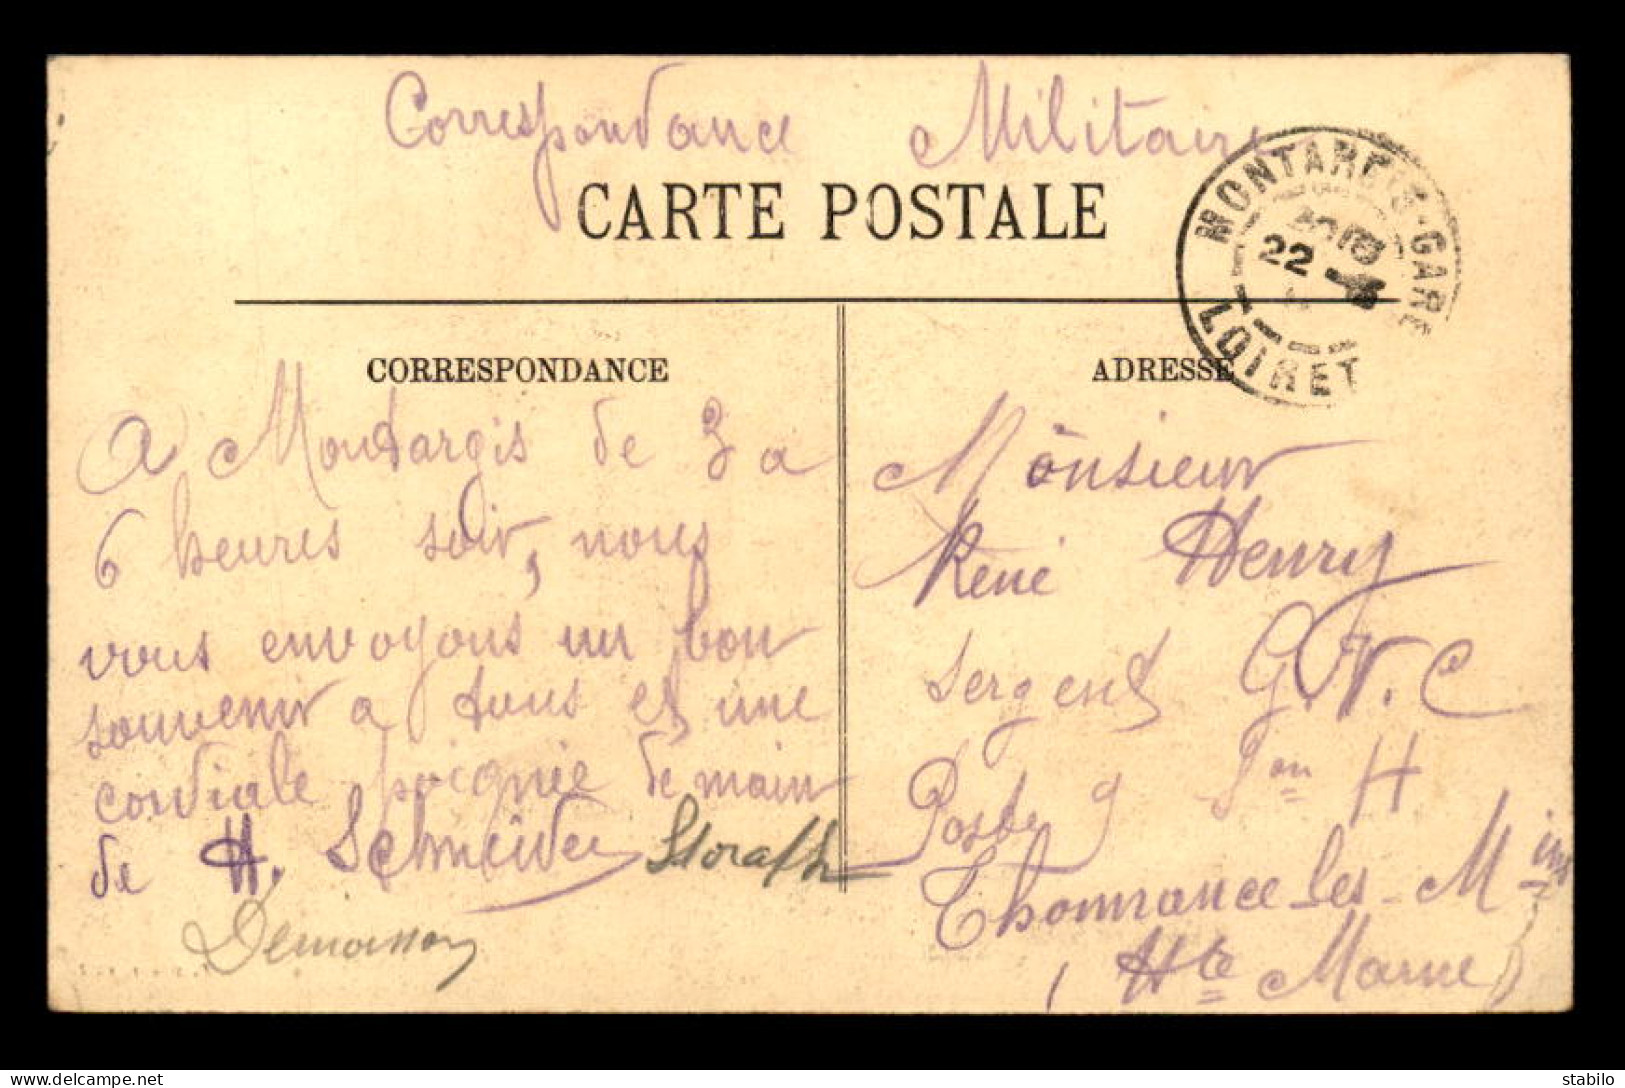 Correspondance Militaire
CARTE POSTALE
MONTARGIS-GARE
22
LOIRET
CORRESPONDANCE
A Montargis de 3 a
6 heures soir, nous
vous envoyons un bon
souvenir a tous et une
cordiale poignée de main
de H. Schneider Storath
Demasson
ADRESSE
Monsieur
René Henry
Sergent G.V.C
Poste 9 Son H
Thonnance-les-Mins
(Hte Marne)
stabilo